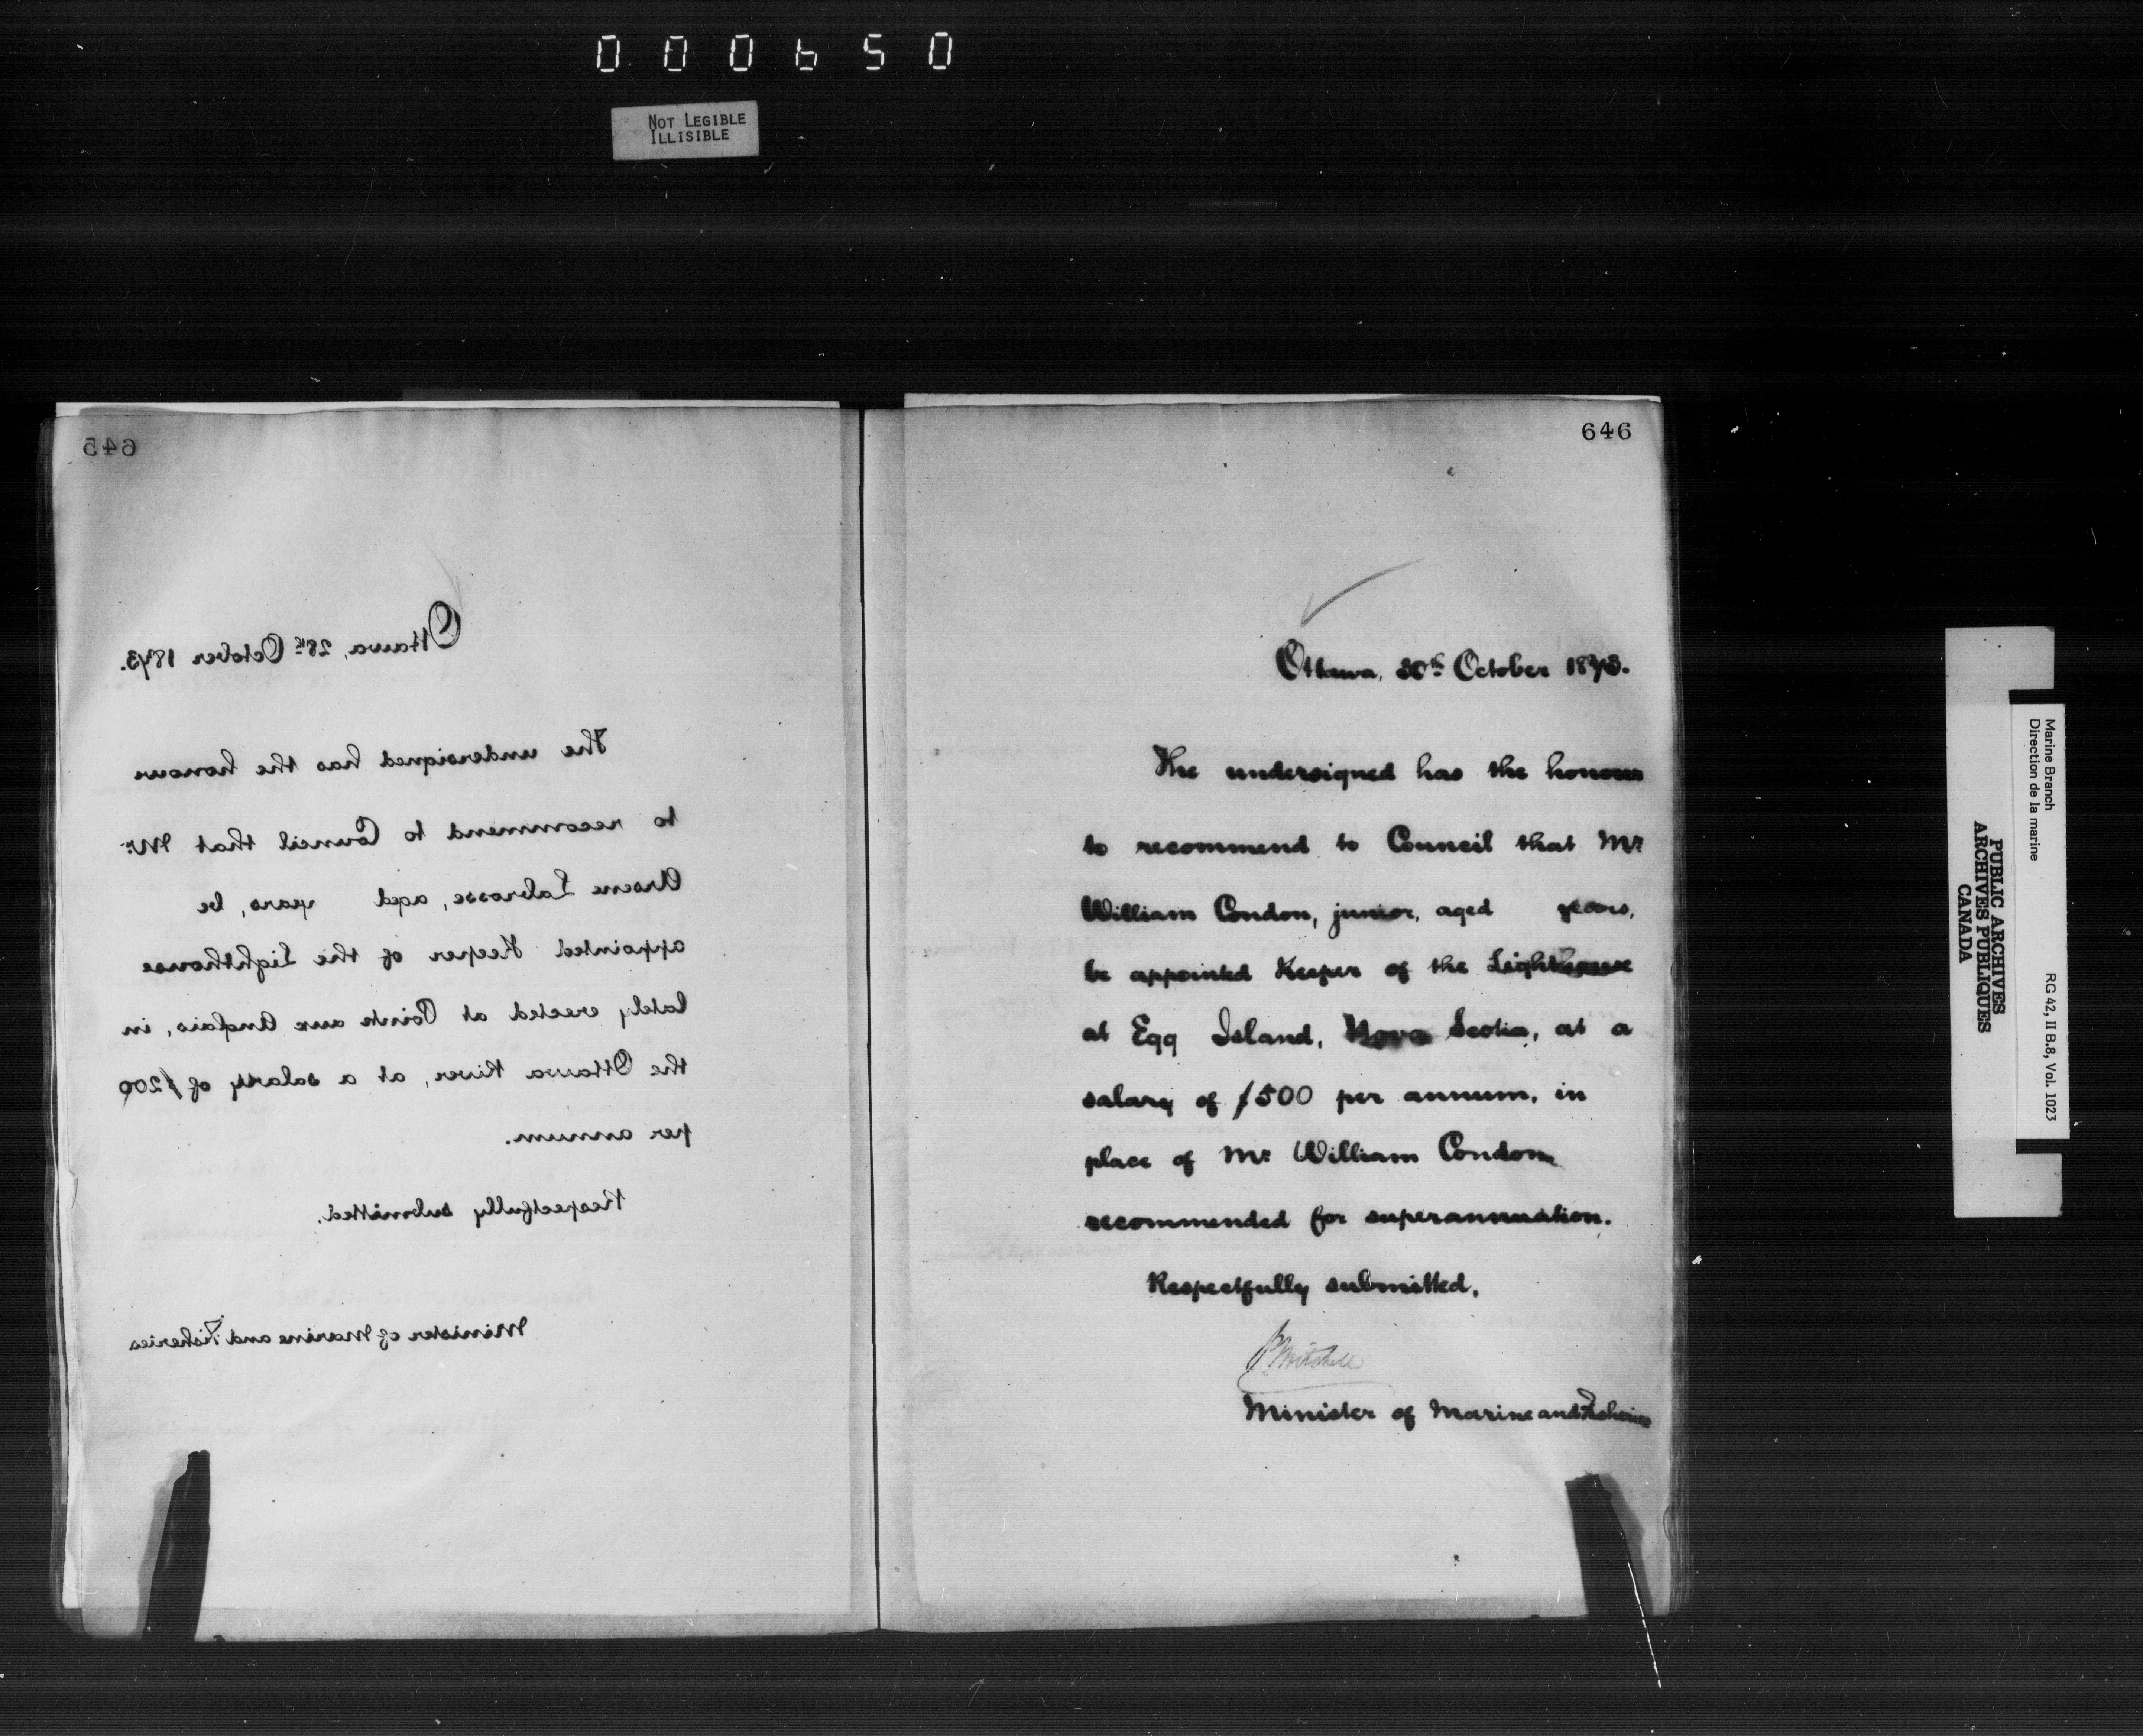 000650
NOT LEGIBLE
ILLISIBLE
645
Ottawa, 28th October 1873.
The undersigned has the honour
to recommend to Council that Mr.
Arsene Labrosse, aged years, be
appointed Keeper of the Lighthouse
lately erected at Pointe aux Anglais, in
the Ottawa River, at a salary of $200
per annum.
Respectfully submitted.
Minister of Marine and Fisheries
646
Ottawa, 30th October 1873.
The undersigned has the honour
to recommend to Council that Mr.
William Condon, junior, aged years,
be appointed Keeper of the Lighthouse
at Egg Island, Nova Scotia, at a
salary of $500 per annum, in
place of Mr. William Condon
recommended for superannuation.
Respectfully submitted,
P. Mitchell
Minister of Marine and Fisheries
Marine Branch
Direction de la marine
RG 42, II B.8, Vol. 1023
PUBLIC ARCHIVES
ARCHIVES PUBLIQUES
CANADA